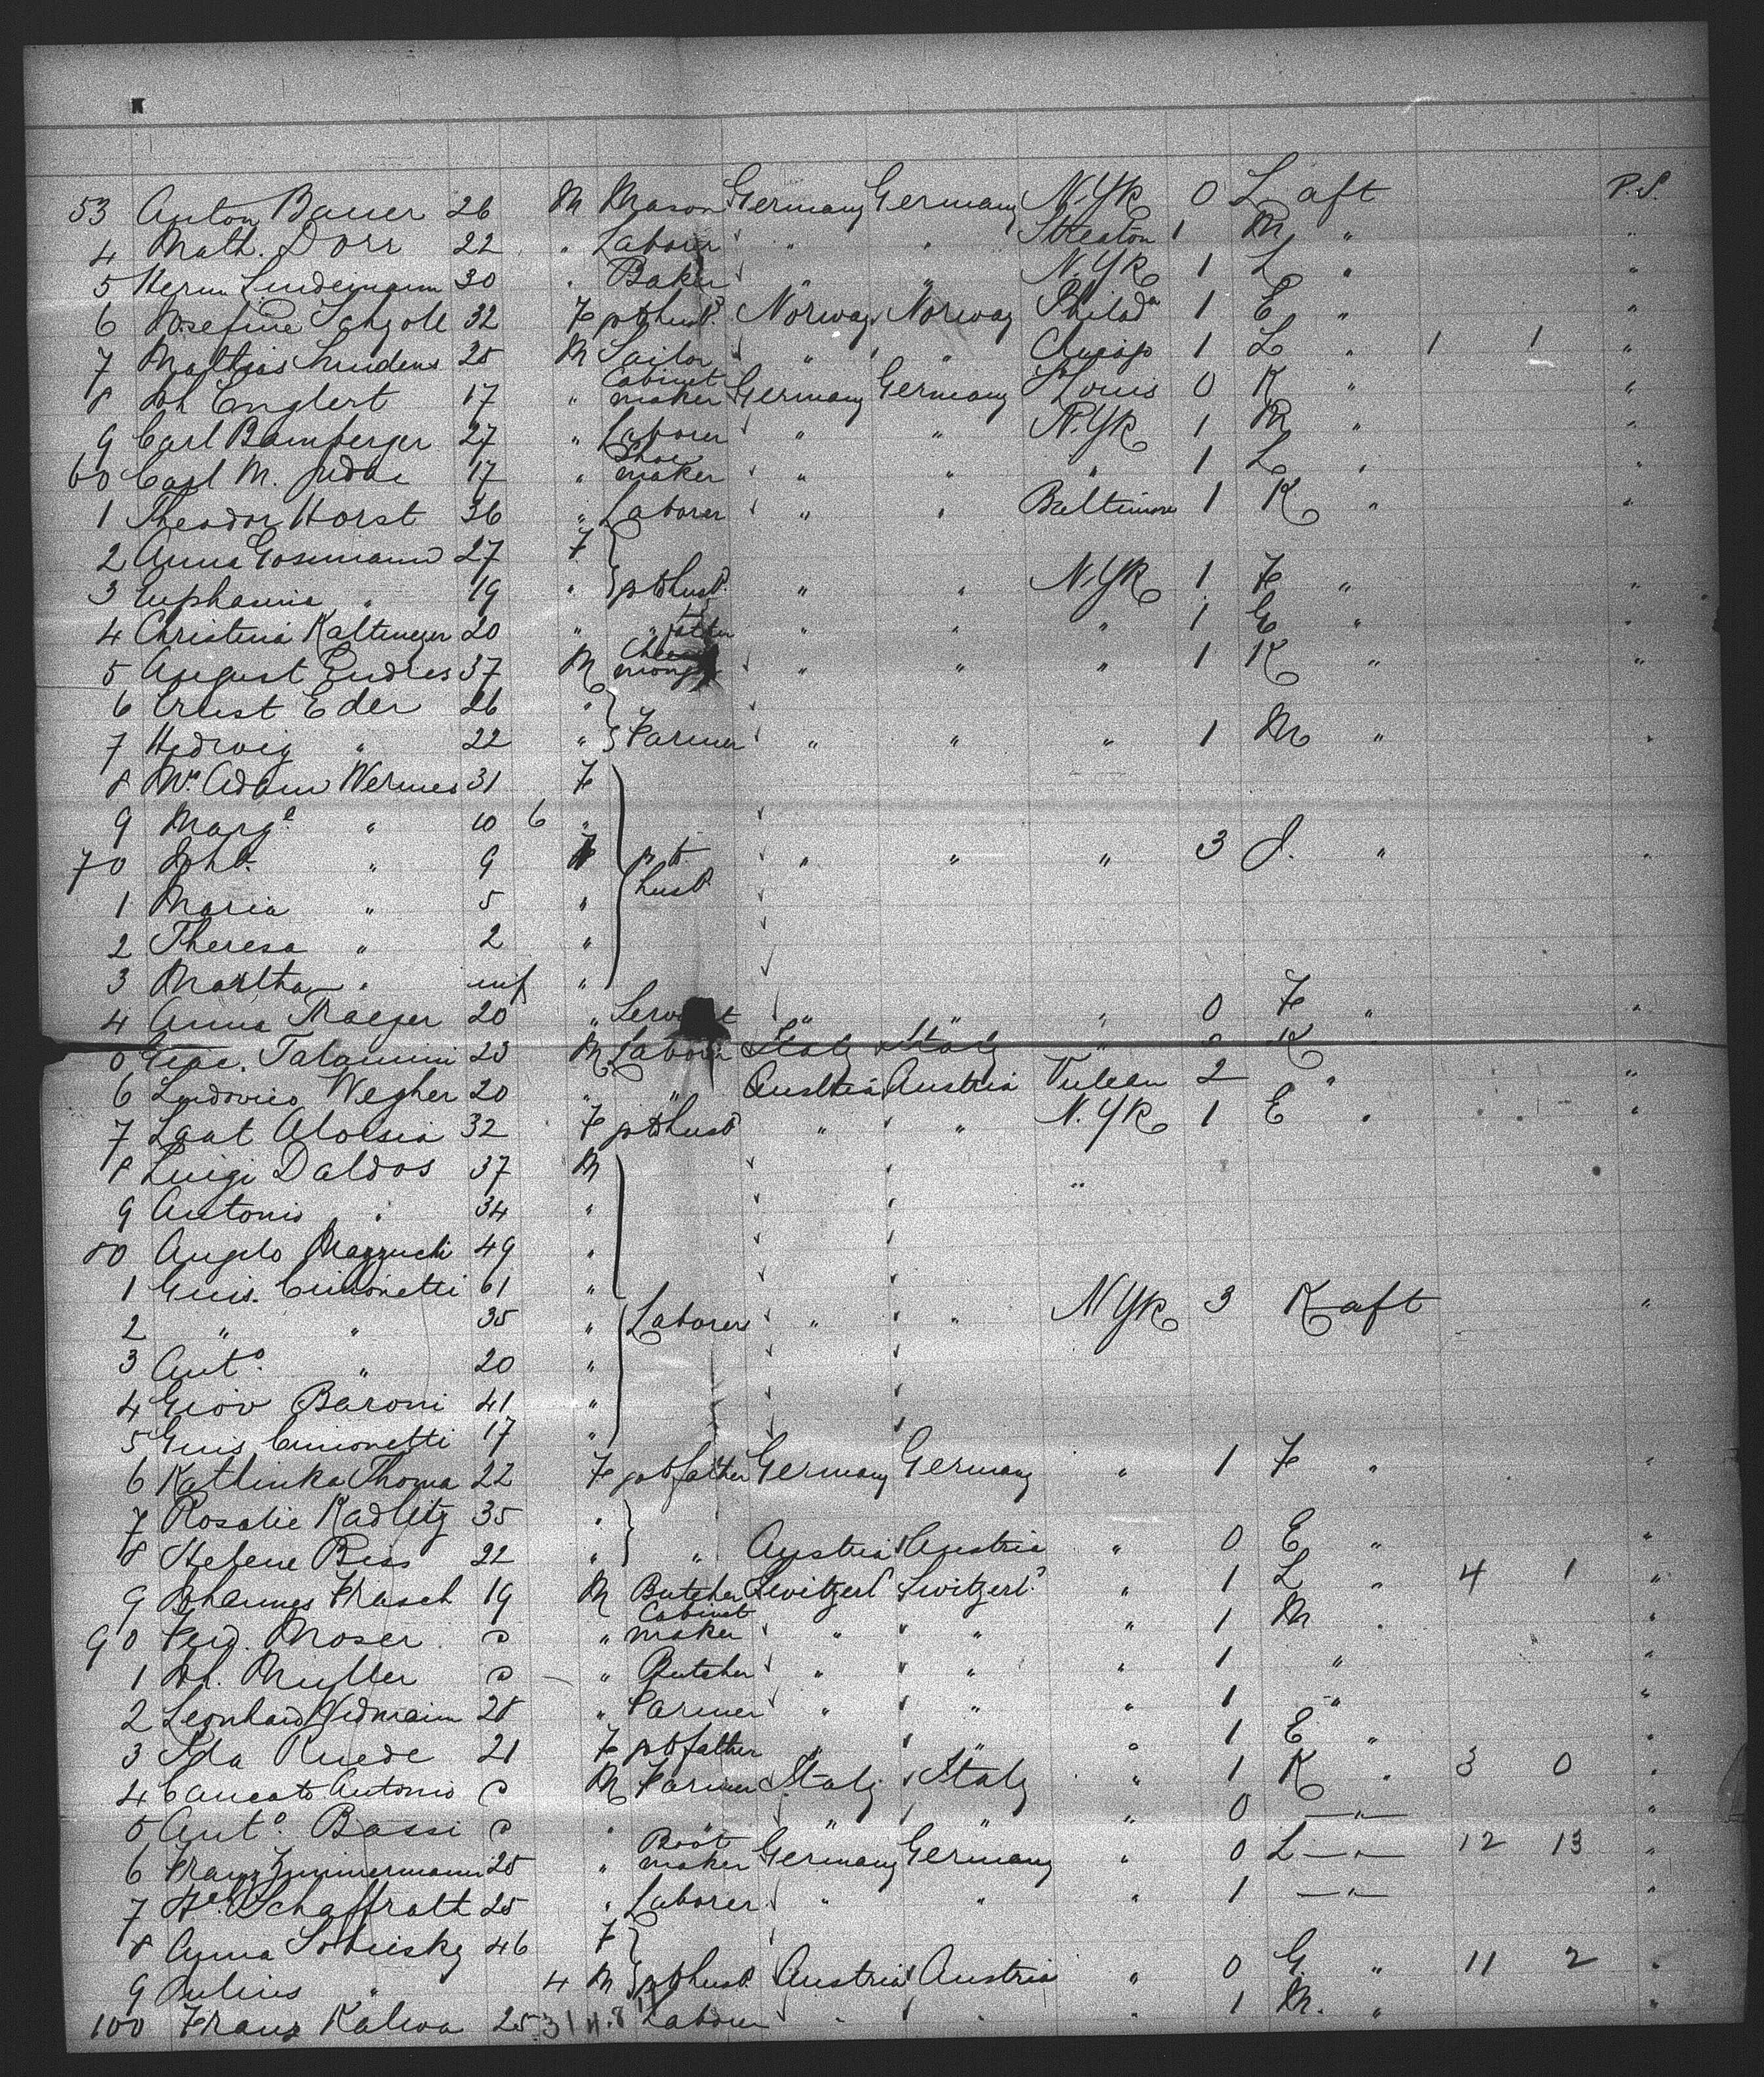 53 Anton Bauer 26 M Mason Germany Germany N.Yk 0 L aft P.S.
4 Math. Dorr 22 " Laborer " " Streator 1 M " "
5 Herm Lindemann 30 " Baker " " N.Yk 1 L " "
6 Josefine 32 F to husb. Norway Norway Philada 1 E " "
7 Mathias 25 M Sailor " " Chicago 1 L " 1 1 "
8 Joh Englert 17 " Cabinet maker Germany Germany St Louis 0 K " "
9 Carl Bamberger 27 " Laborer " " N.Yk 1 M " "
60 Carl M. 17 " Shoe maker " " " 1 L " "
1 Theodor Horst 36 " Laborer " " Baltimore 1 K " "
2 Anna Gosmann 27 F
3 Euphamia " 19 " to husb. " " N.Yk 1 F " "
4 Christina Kaltmeyer 20 " " father " " " 1 E " "
5 August Endres 37 M " " " 1 K " "
6 Ernst Eder 26 "
7 Hedwig " 22 " Farmer " " " 1 M " "
8 Adam Wermes 31 F
9 Marge " 10 6 "
70 Joh. " 9 to husb. " " " 3 J. " "
1 Maria " 5 "
2 Theresa " 2 "
3 Martha " inf "
4 Anna Traeger 20 " Servant " " " 0 F " "
5 Giac. Talamini 23 M Laborer Italy Italy " 0 K
6 Ludovico Wegher 20 " " Austria Austria 2 " "
7 Laat Aloesia 32 F to husb " " N.Yk 1 E " "
8 Luigi Daldos 37 M "
9 Antonio " 34 "
80 Angelo 49 "
1 Guis. Cimonetti 61 "
2 " " 35 " Laborers " " N Yk 3 K aft "
3 Anto. " 20 "
4 Giov Baroni 41 "
5 Guis Cimonetti 17 "
6 Kathinka Thoma 22 F to father Germany Germany " 1 F " "
7 Rosalie Kadletz 35 "
8 Helene Reis 22 " " Austria Austria " 0 E " "
9 Johannes Frasch 19 M Butcher Switzerl Switzerl. " 1 L " 4 1 "
90 Ferd. Moser " Cabinet maker " " " 1 M " "
1 Joh. Muller " Butcher " " " 1 " "
2 Leonhard 28 " Farmer " " " 1 " "
3 Ida Ruede 21 F to father " " " 1 E " "
4 Antonio M Farmer Italy Italy " 1 K " 3 0 "
5 Anto. Bassi " " " " 0 " "
6 Franz Zimmermann 25 " Boot maker Germany Germany " 0 L " 12 13 "
7 Schaffrath 25 " Laborer " " " 1 " "
8 Anna Sobiesky 46 F
9 Julius " 4 M to husb. Austria Austria " 0 G. " 11 2 "
100 Franz Kalwa 25 Laborer " " " 1 M. " "